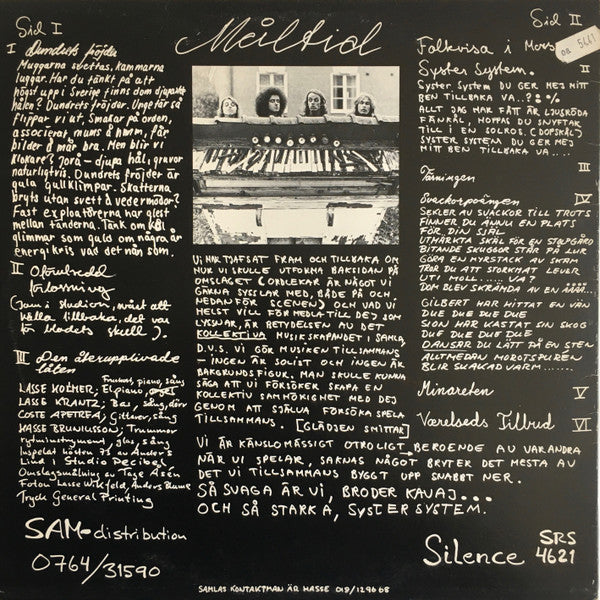 Måltid
Sid I
I Dundrets fröjder
Muggarna svettas, kammarna
luggar. Har du tänkt på att
högst upp i Sverige finns dom djupaste
hålen? Dundrets fröjder. Ungefär så
flippar vi ut. Smakar på orden,
associerar, mums å hmm, får
bilder å mår bra. Men blir vi
klokare? Jorå - djupa hål, gravar
naturligtvis. Dundrets fröjder är
gula gullklimpar. Skatterna
bryts utan svett å vedermödor?
Fast exploatörerna har glest
mellan tänderna. Tänk om kål
glimmar som guld om några år
energikris vad det nån som.
II Oförutsedd
förlossning
(Jam i studion, svårt att
hålla tillbaka, det var
för bladets skull).
III Den återupplivade
låten
LASSE KOLMER; El piano, orgel
Trumpet, piano, sång
LASSE KRANTZ; Bas, sång, dörr
COSTE APETREA; Gitarrer, sång
HASSE BRUNIUSSON; Trummor
rytminstrument, glas, sång
Inspelat hösten 73 av Anders
Lind i Studio Decibel
Omslagsmålning av Tage Åsén
Foton Lasse Wikfeld, Anders Blume
Tryck General Printing
SAM-distribution
0764/31590
Vi har tjafsat fram och tillbaka om
hur vi skulle utforma baksidan på
omslaget (ordlekar är något vi
gärna sysslar med, både på och
nedanför scenen) och vad vi
helst vill förmedla till dej som
lyssnar, är betydelsen av det
kollektiva musikskapandet i Samla,
d.v.s. vi gör musiken tillsammans
- ingen är solist och ingen är
bakgrundsfigur. Man skulle kunna
säga att vi försöker skapa en
kollektiv samhörighet med dej
genom att själva försöka spela
tillsammans. [Glädjen smittar]
Vi är känslomässigt otroligt beroende av varandra
när vi spelar, saknas något bryter det mesta av
det vi tillsammans byggt upp snabbt ner.
Så svaga är vi, broder kavaj...
och så starka, syster system.
Sid II
Folkvisa i Mors
OR 5641
II
Syster System.
Syster system du ger mej mitt
ben tillbaka va..?:%
Allt jag har fått är ljusröda
fänkål, hoppas du nyftar
till i en solros. (dopskål)
Syster system du ger mej
mitt ben tillbaka va....
III
Värningen
IV
Svackorpoängen
Sekler av svackor till trots
finner du ännu en plats
för din själ
Utmärkta skäl för en stepgård
Bitande skuggor står på lur
Göra en myrstack av skam
Tror du att stormat lever
ut i moll...... va?
Dom blev skrämda av en aaar...
Gilbert har hittat en vän
due due due due
Sion har kastat sin skog
due due due due
Dansar du lätt på en sten
Alltmedan morotspuren
blir skalad varm.......
Minareten V
Værelseds Tilbud VI
Silence SRS
4621
SAMLAS KONTAKTMAN ÄR HASSE 019/129668